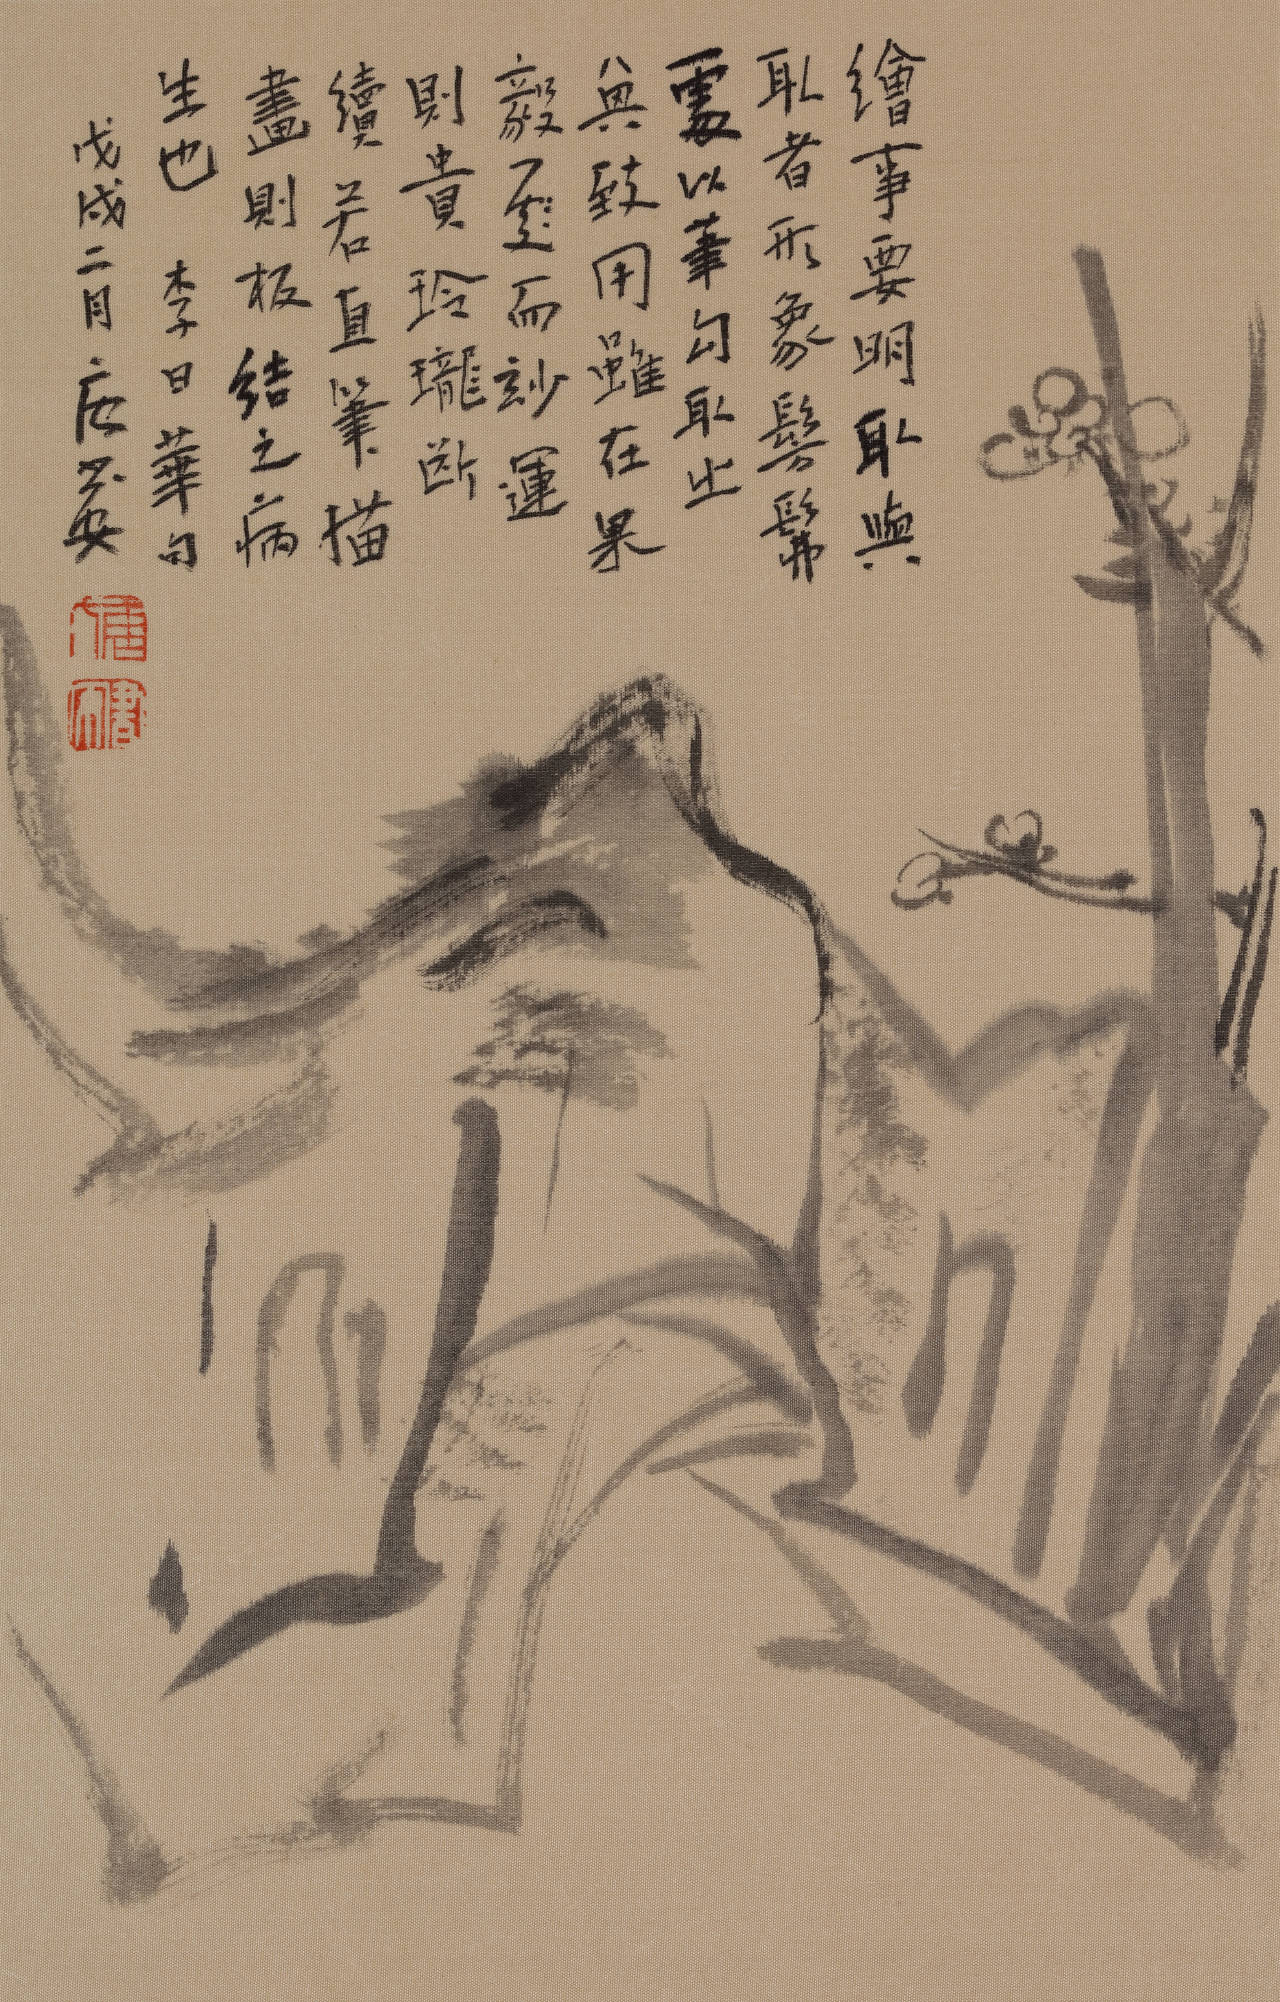 繪事要明取與
取者形象髣髴
處以筆勾取之
其致用雖在果
毅而玅運
則貴玲瓏断
續若直筆描
畫則板結之病
生也 李日華句
戊戌二月